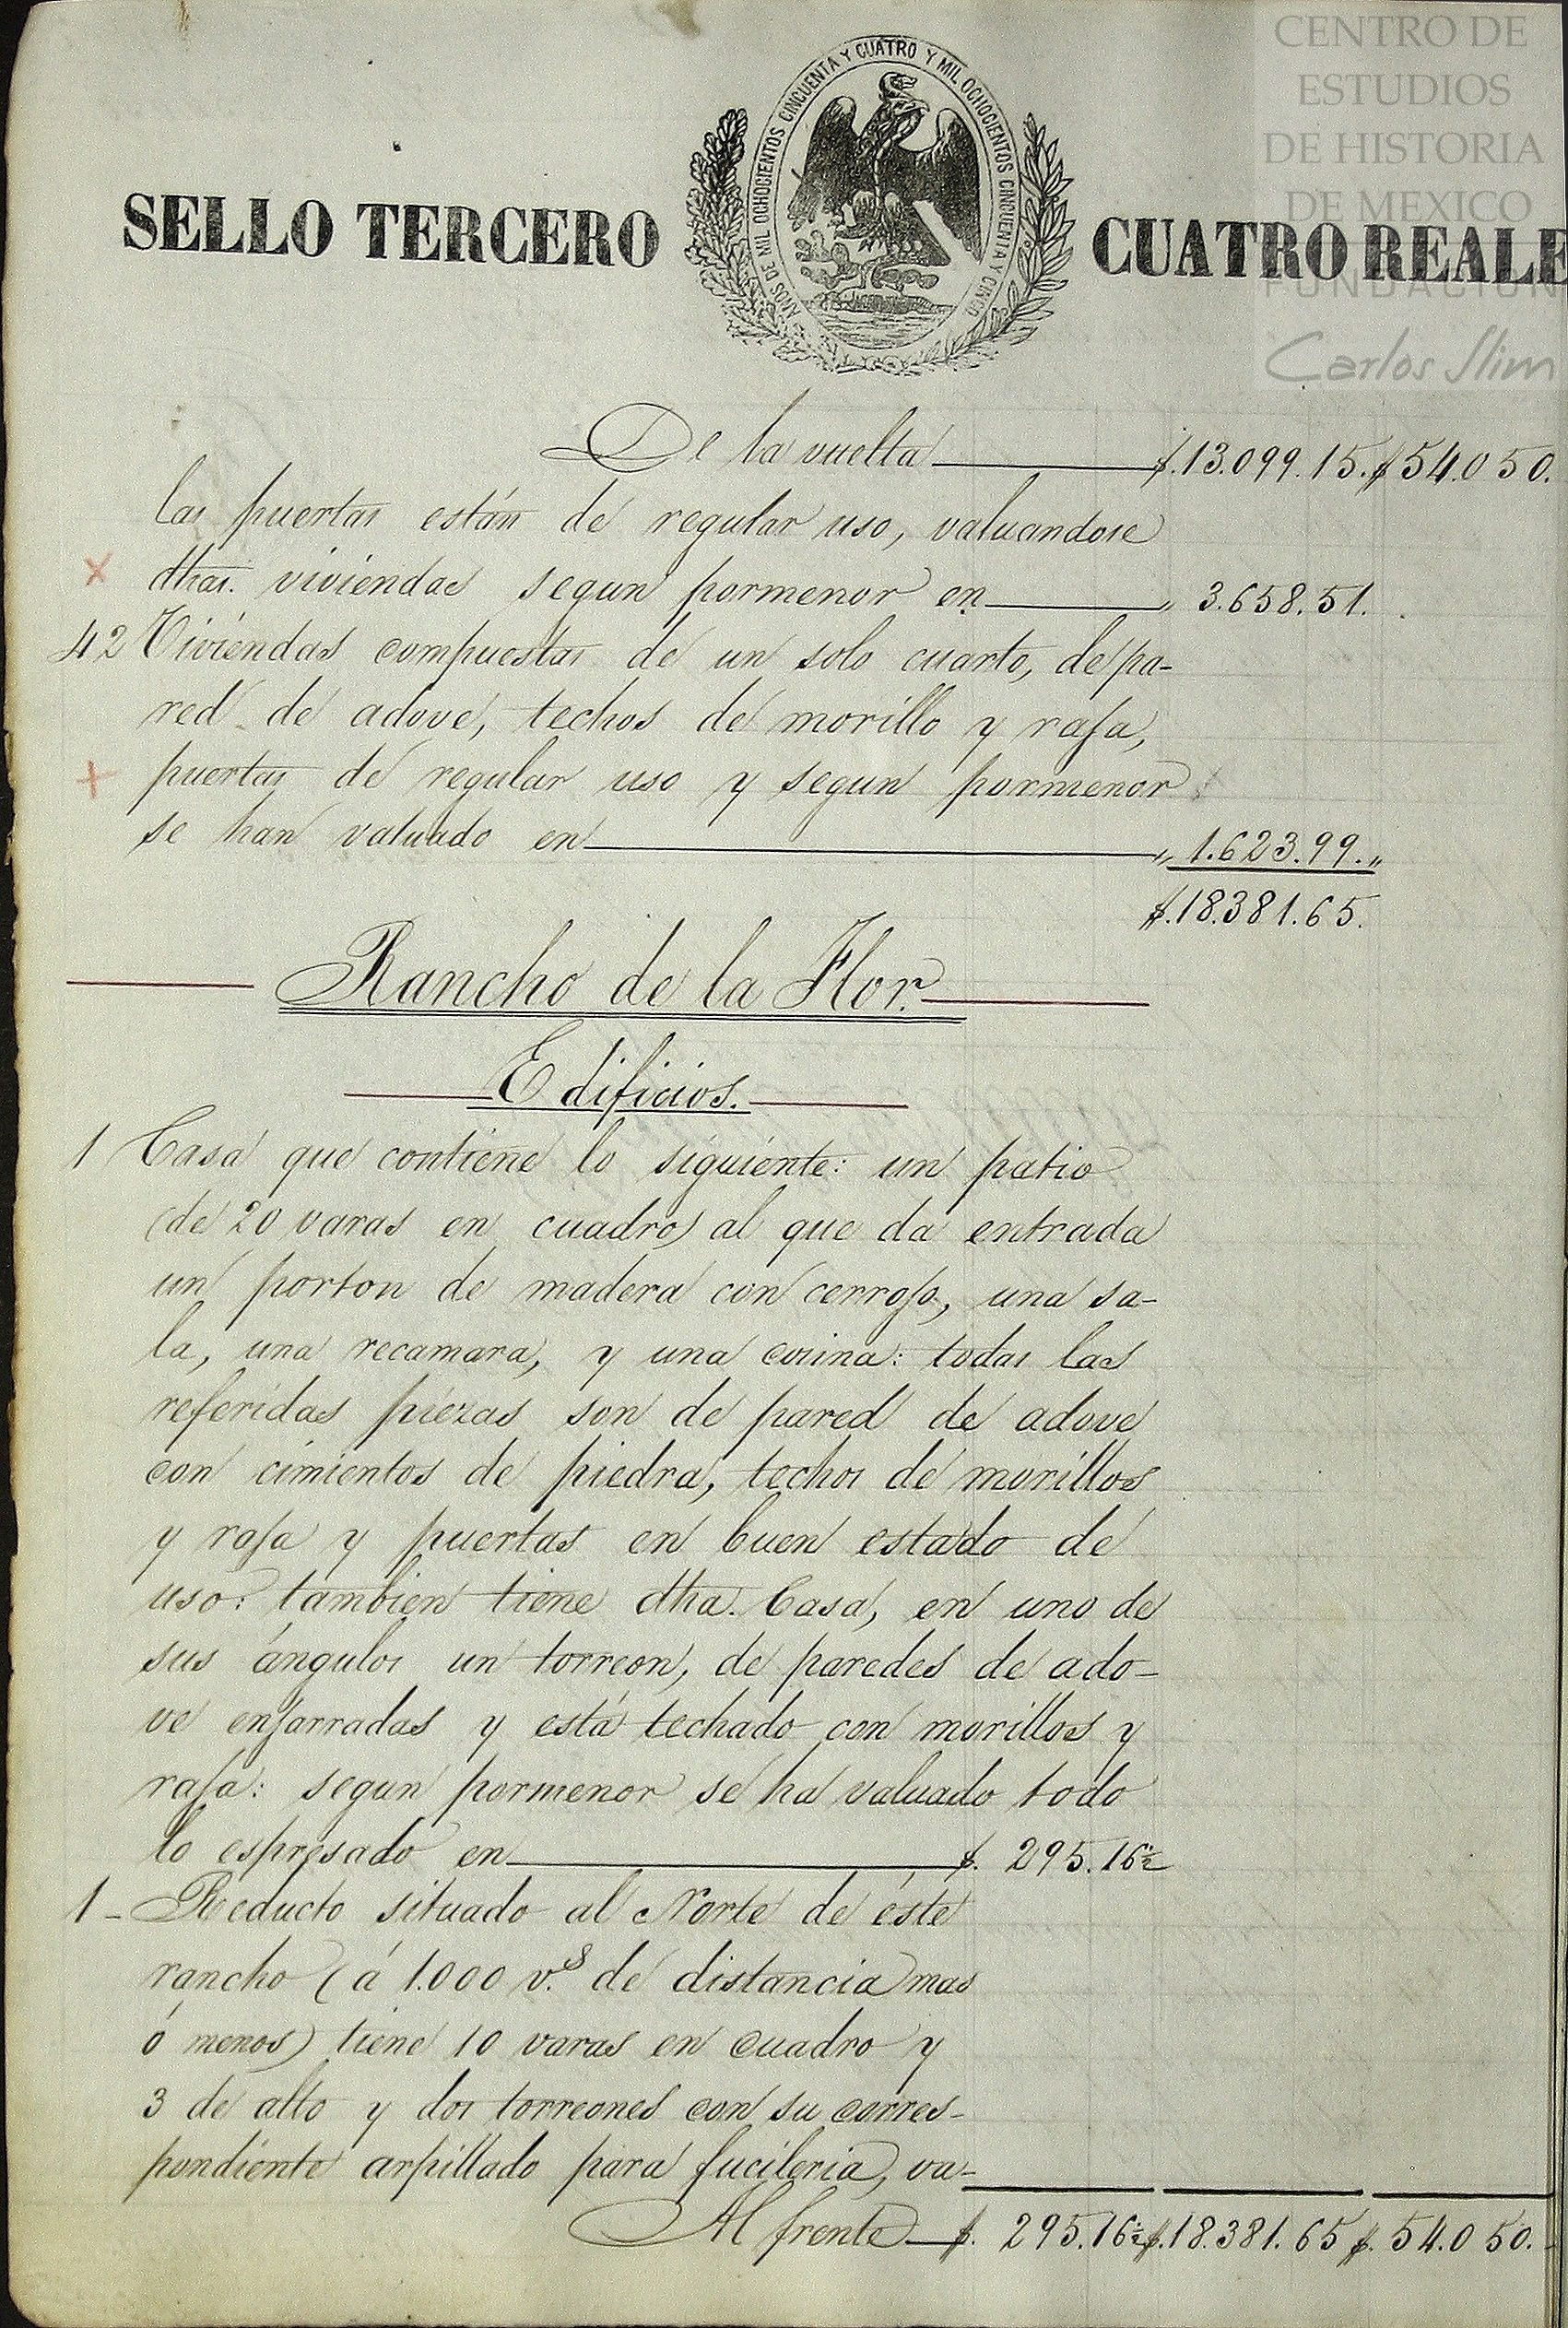 CENTRO DE
ESTUDIOS
DE HISTORIA
DE MEXICO
FUNDACION
Carlos Slim
AÑOS DE MIL OCHOCIENTOS CINCUENTA Y CUATRO Y MIL OCHOCIENTOS CINCUENTA Y CINCO
SELLO TERCERO CUATRO REALE
De la vuelta $.13.099.15. $54.050.
las puertas están de regular uso, valuandose
dhas. viviendas segun pormenor en „ 3.658.51.
42 Viviendas compuestas de un solo cuarto, de pa-
red de adove, techos de morillo y raja,
puertas de regular uso y segun pormenor
se han valuado en „ 1.623.99.„
$.18.381.65.
Rancho de la Flor.
Edificios.
1 Casa que contiene lo siguiente: un patio
(de 20 varas en cuadro) al que da entrada
un porton de madera con cerrojo, una sa-
la, una recamara, y una cocina: todas las
referidas piezas son de pared de adove
con cimientos de piedra, techos de morillos
y raja y puertas en buen estado de
uso: tambien tiene dha. Casa, en uno de
sus ángulos un torreon, de paredes de ado-
ve enjarradas y está techado con morillos y
raja: segun pormenor se ha valuado todo
lo espresado en $. 295.16½
1 - Reducto situado al Norte de éste
rancho (á 1.000 v.s de distancia mas
ó menos) tiene 10 varas en cuadro y
3 de alto y dos torreones con su corres-
pondiente arpillado para fucileria, va-
Al frente $. 295.16½ $.18.381.65 $. 54.050.